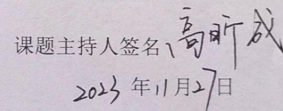 课题主持人签名:高昕成
2023年11月27日